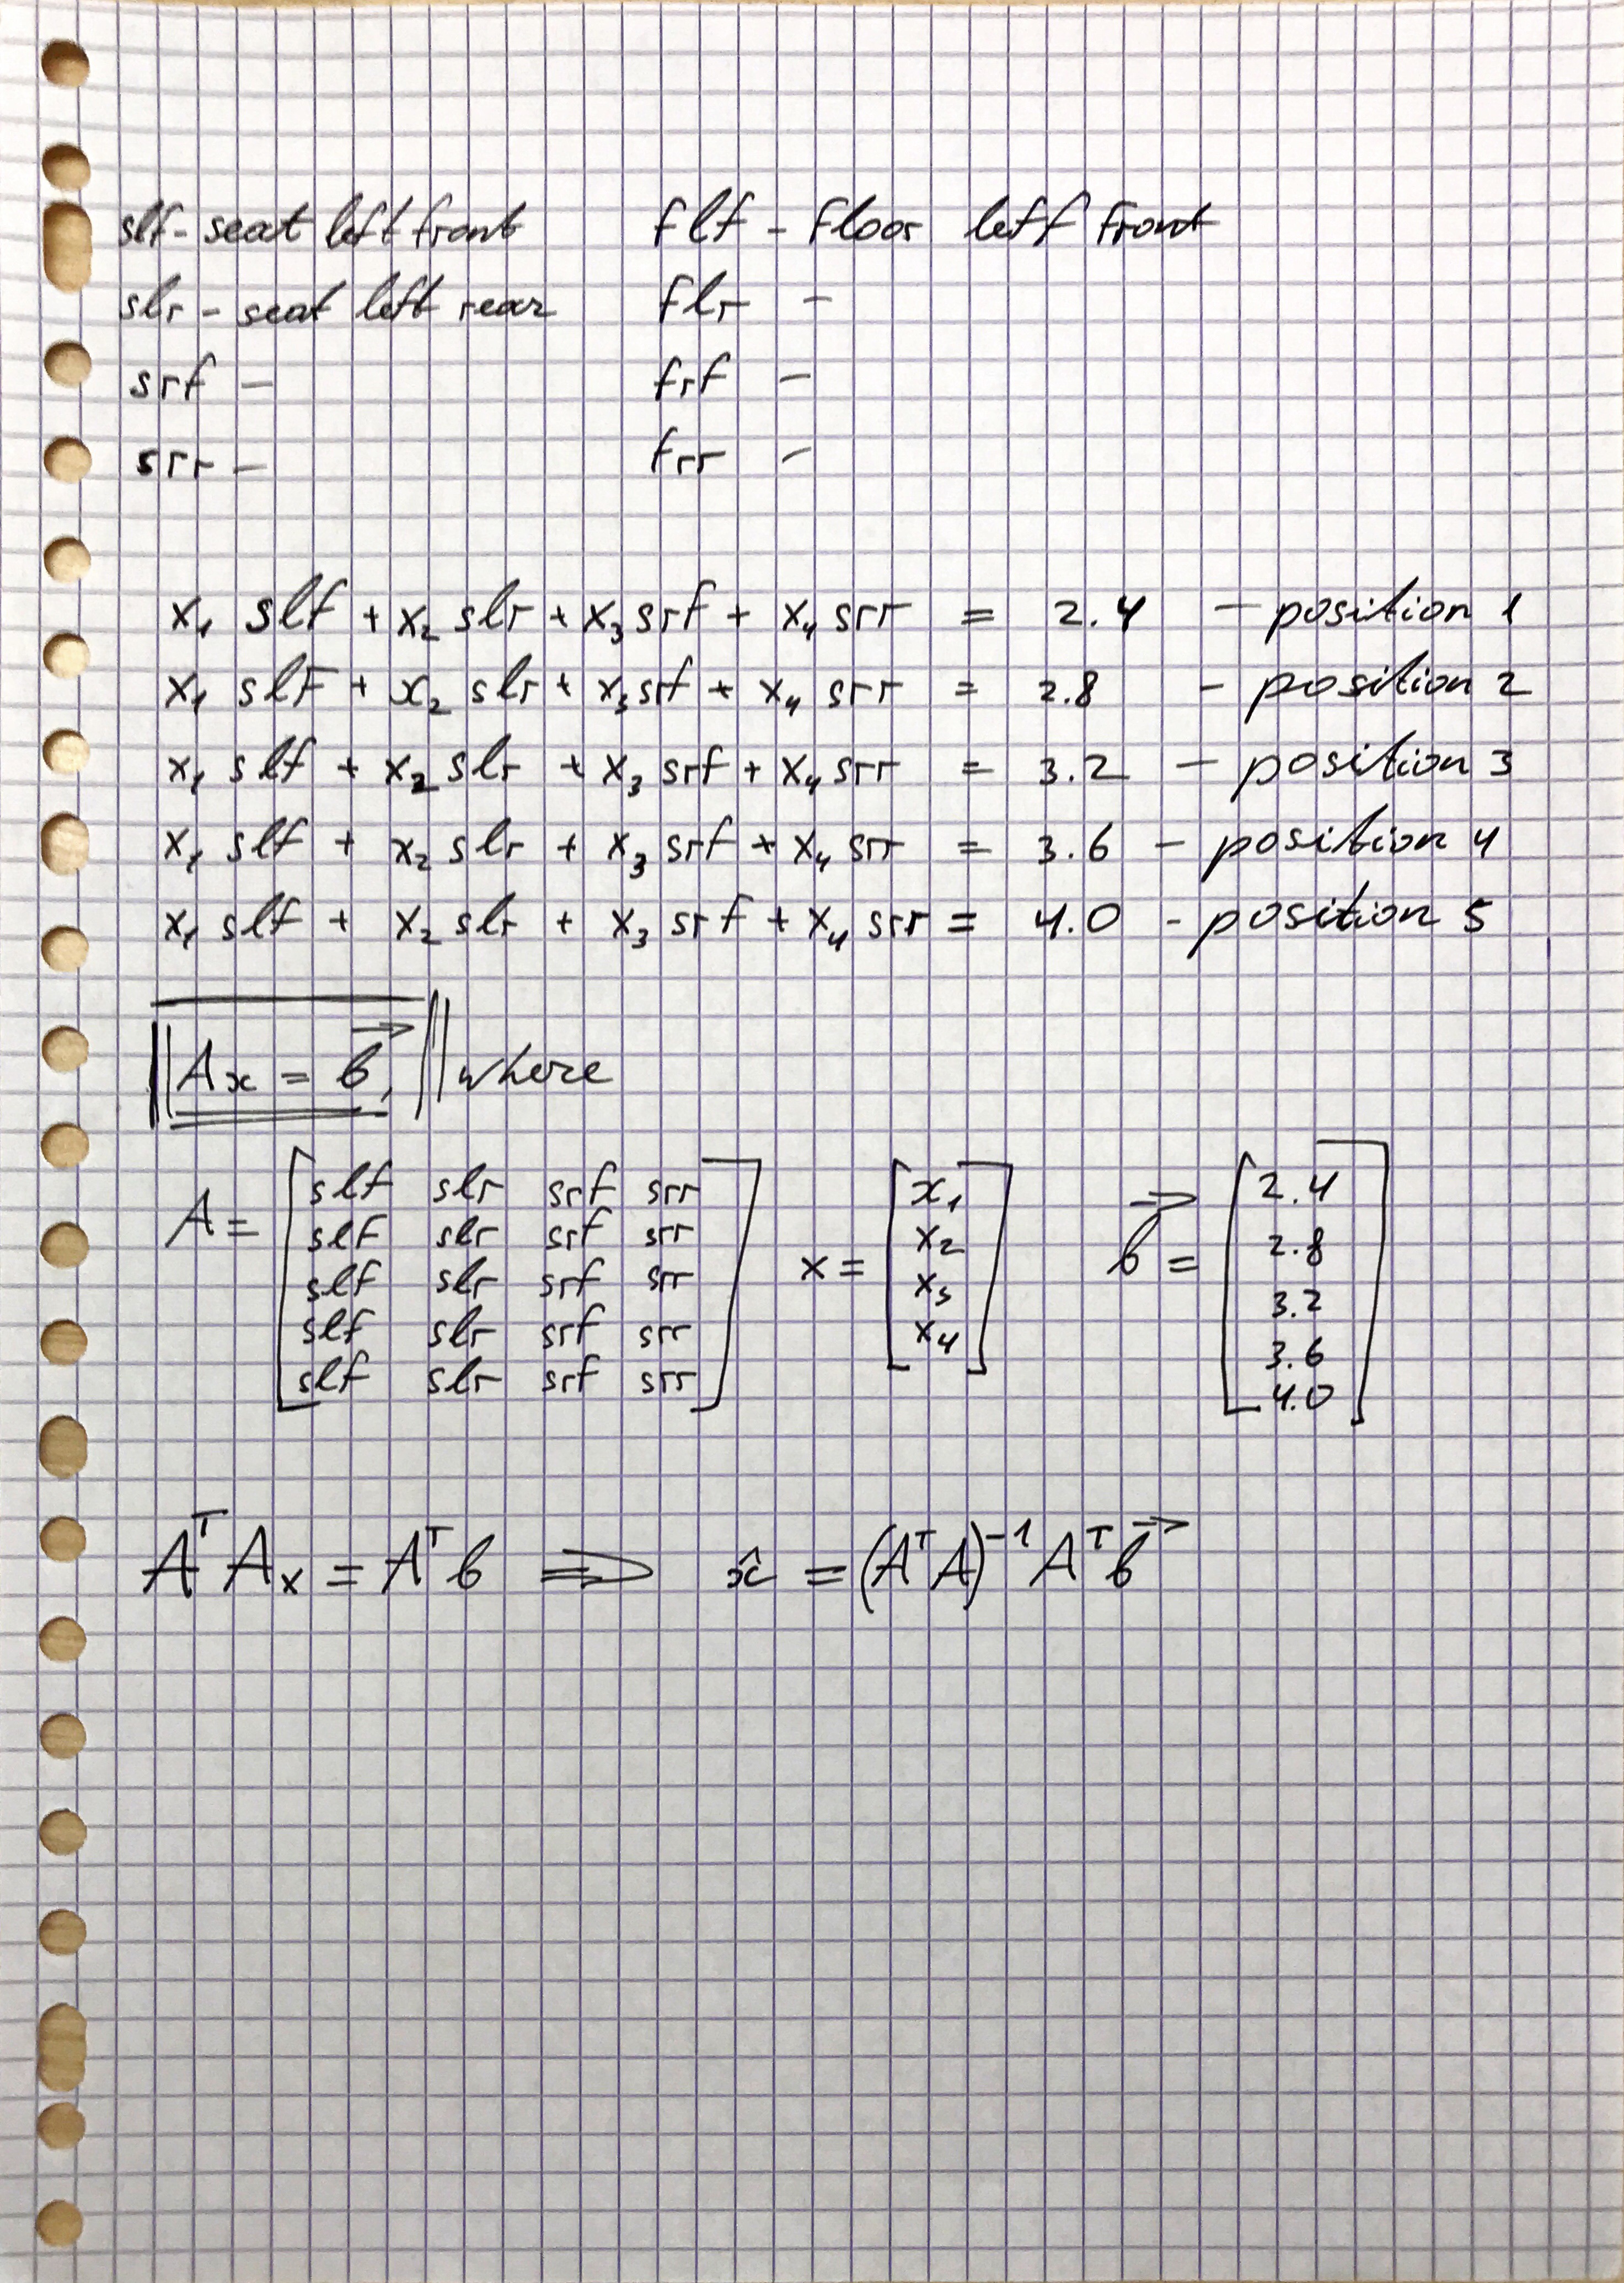 slf - seat left front flf - floor left front
slr - seat left rear flr -
srf - frf -
srr - frr -
x₁ slf + x₂ slr + x₃ srf + x₄ srr = 2.4 - position 1
x₁ slf + x₂ slr + x₃ srf + x₄ srr = 2.8 - position 2
x₁ slf + x₂ slr + x₃ srf + x₄ srr = 3.2 - position 3
x₁ slf + x₂ slr + x₃ srf + x₄ srr = 3.6 - position 4
x₁ slf + x₂ slr + x₃ srf + x₄ srr = 4.0 - position 5
Ax = b⃗, where
A = [slf slr srf srr x = [x₁ b⃗ = [2.4
slf slr srf srr x₂ 2.8
slf slr srf srr x₃ 3.2
slf slr srf srr x₄] 3.6
slf slr srf srr] 4.0]
AᵀAx = Aᵀb ⇒ x̂ = (AᵀA)⁻¹Aᵀb⃗